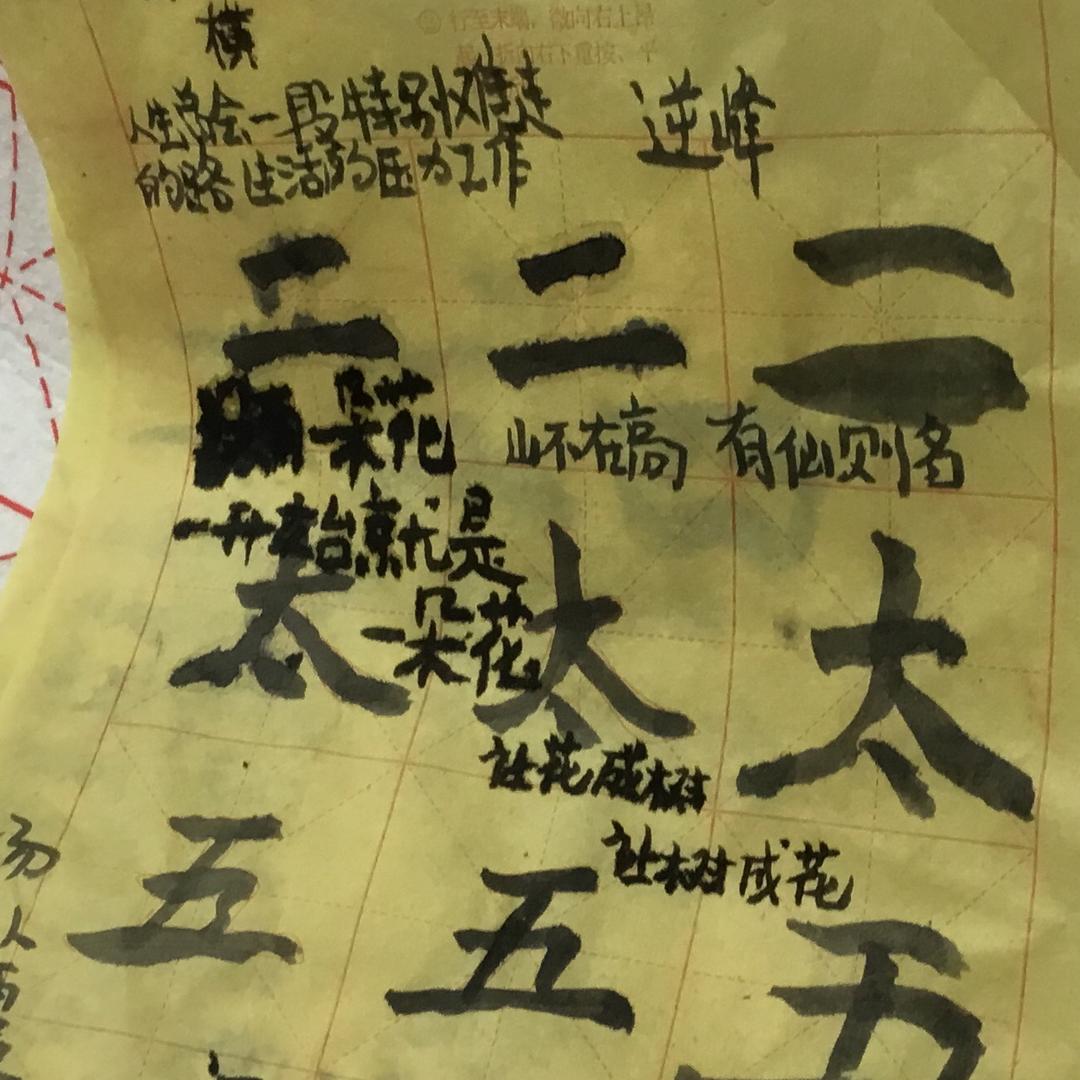 行至末端，微向右上昂
横
人生总会一段特别难走
的路 生活的压力工作
逆峰
二 二 二
一朵花
山不在高 有仙则名
就是
一朵花
太 太 太
让花成树
让树成花
五 五 五